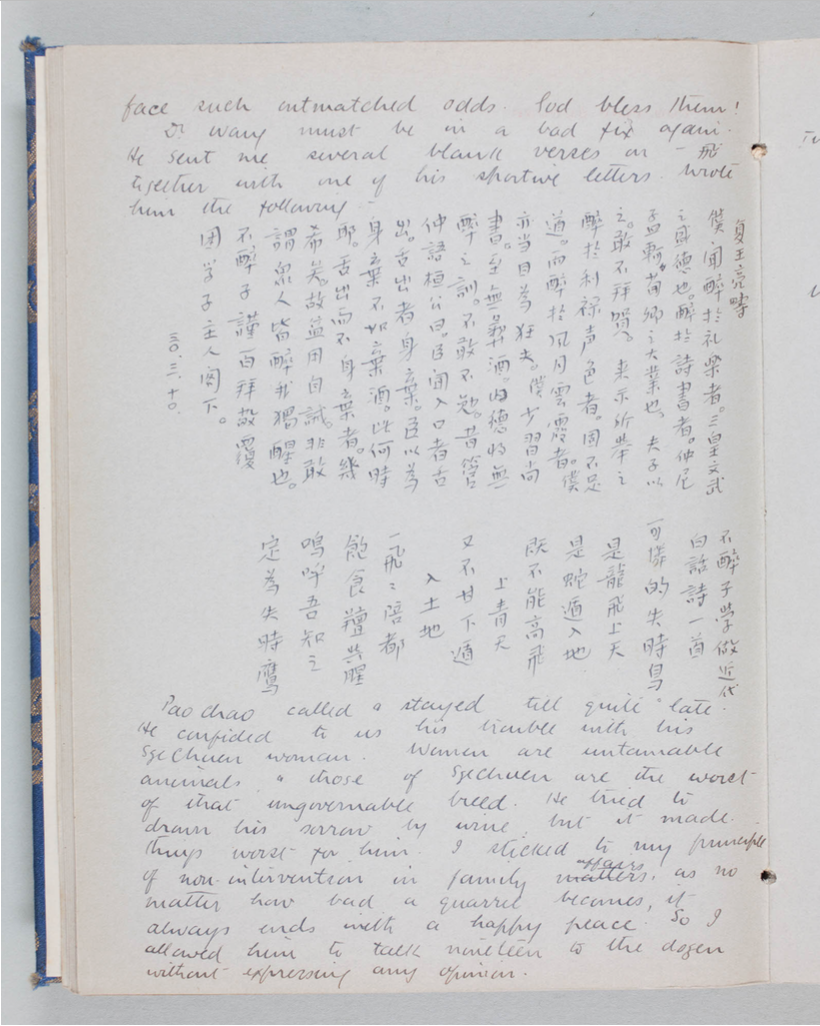 face such outmatched odds. God bless them!
Dr Wang must be in a bad fix again.
He sent me several blank verses on 一飛
together with one of his sportive letters. Wrote
him the following -
復王亮疇
僕聞醉於礼樂者。三皇文武
之盛德也。醉於詩書者。仲尼
孟軻荀卿之大業也。夫子以
之。敢不拜賀。来示所舉之
醉於利祿声色者。固不足
道。而醉於风月雲霞者。僕
亦当目為狂夫。僕少習尚
書。至無彝酒。由德將無
醉之訓。不敢不勉。昔管
仲語桓公曰。臣聞入口者舌
出。舌出者身棄。臣以為
身棄不如棄酒。此何時
耶。舌出而不身棄者。幾
希矣。故益用自誡。非敢
謂衆人皆醉我獨醒也。
不醉子謹百拜敬覆
困学子主人閣下。
三〇.三.十〇.
不醉子學做近代
白話詩一首
可憐的失時鳥。
是龍飛上天
是蛇遁入地
既不能高飛
上青天
又不甘下遁
入土地
一飛飛陪都
飽食羶與腥
嗚呼吾知之
定為失時鷹
Pao chao called & stayed till quite late.
He confided to us his trouble with his
Szechuen woman. Women are untamable
animals & those of Szechuen are the worst
of that ungovernable breed. He tried to
drown his sorrow by wine but it made
things worst for him. I sticked to my principle
of non-intervention in family matters affairs, as no
matter how bad a quarrel becomes, it
always ends with a happy peace. So I
allowed him to talk nineteen to the dozen
without expressing any opinion.